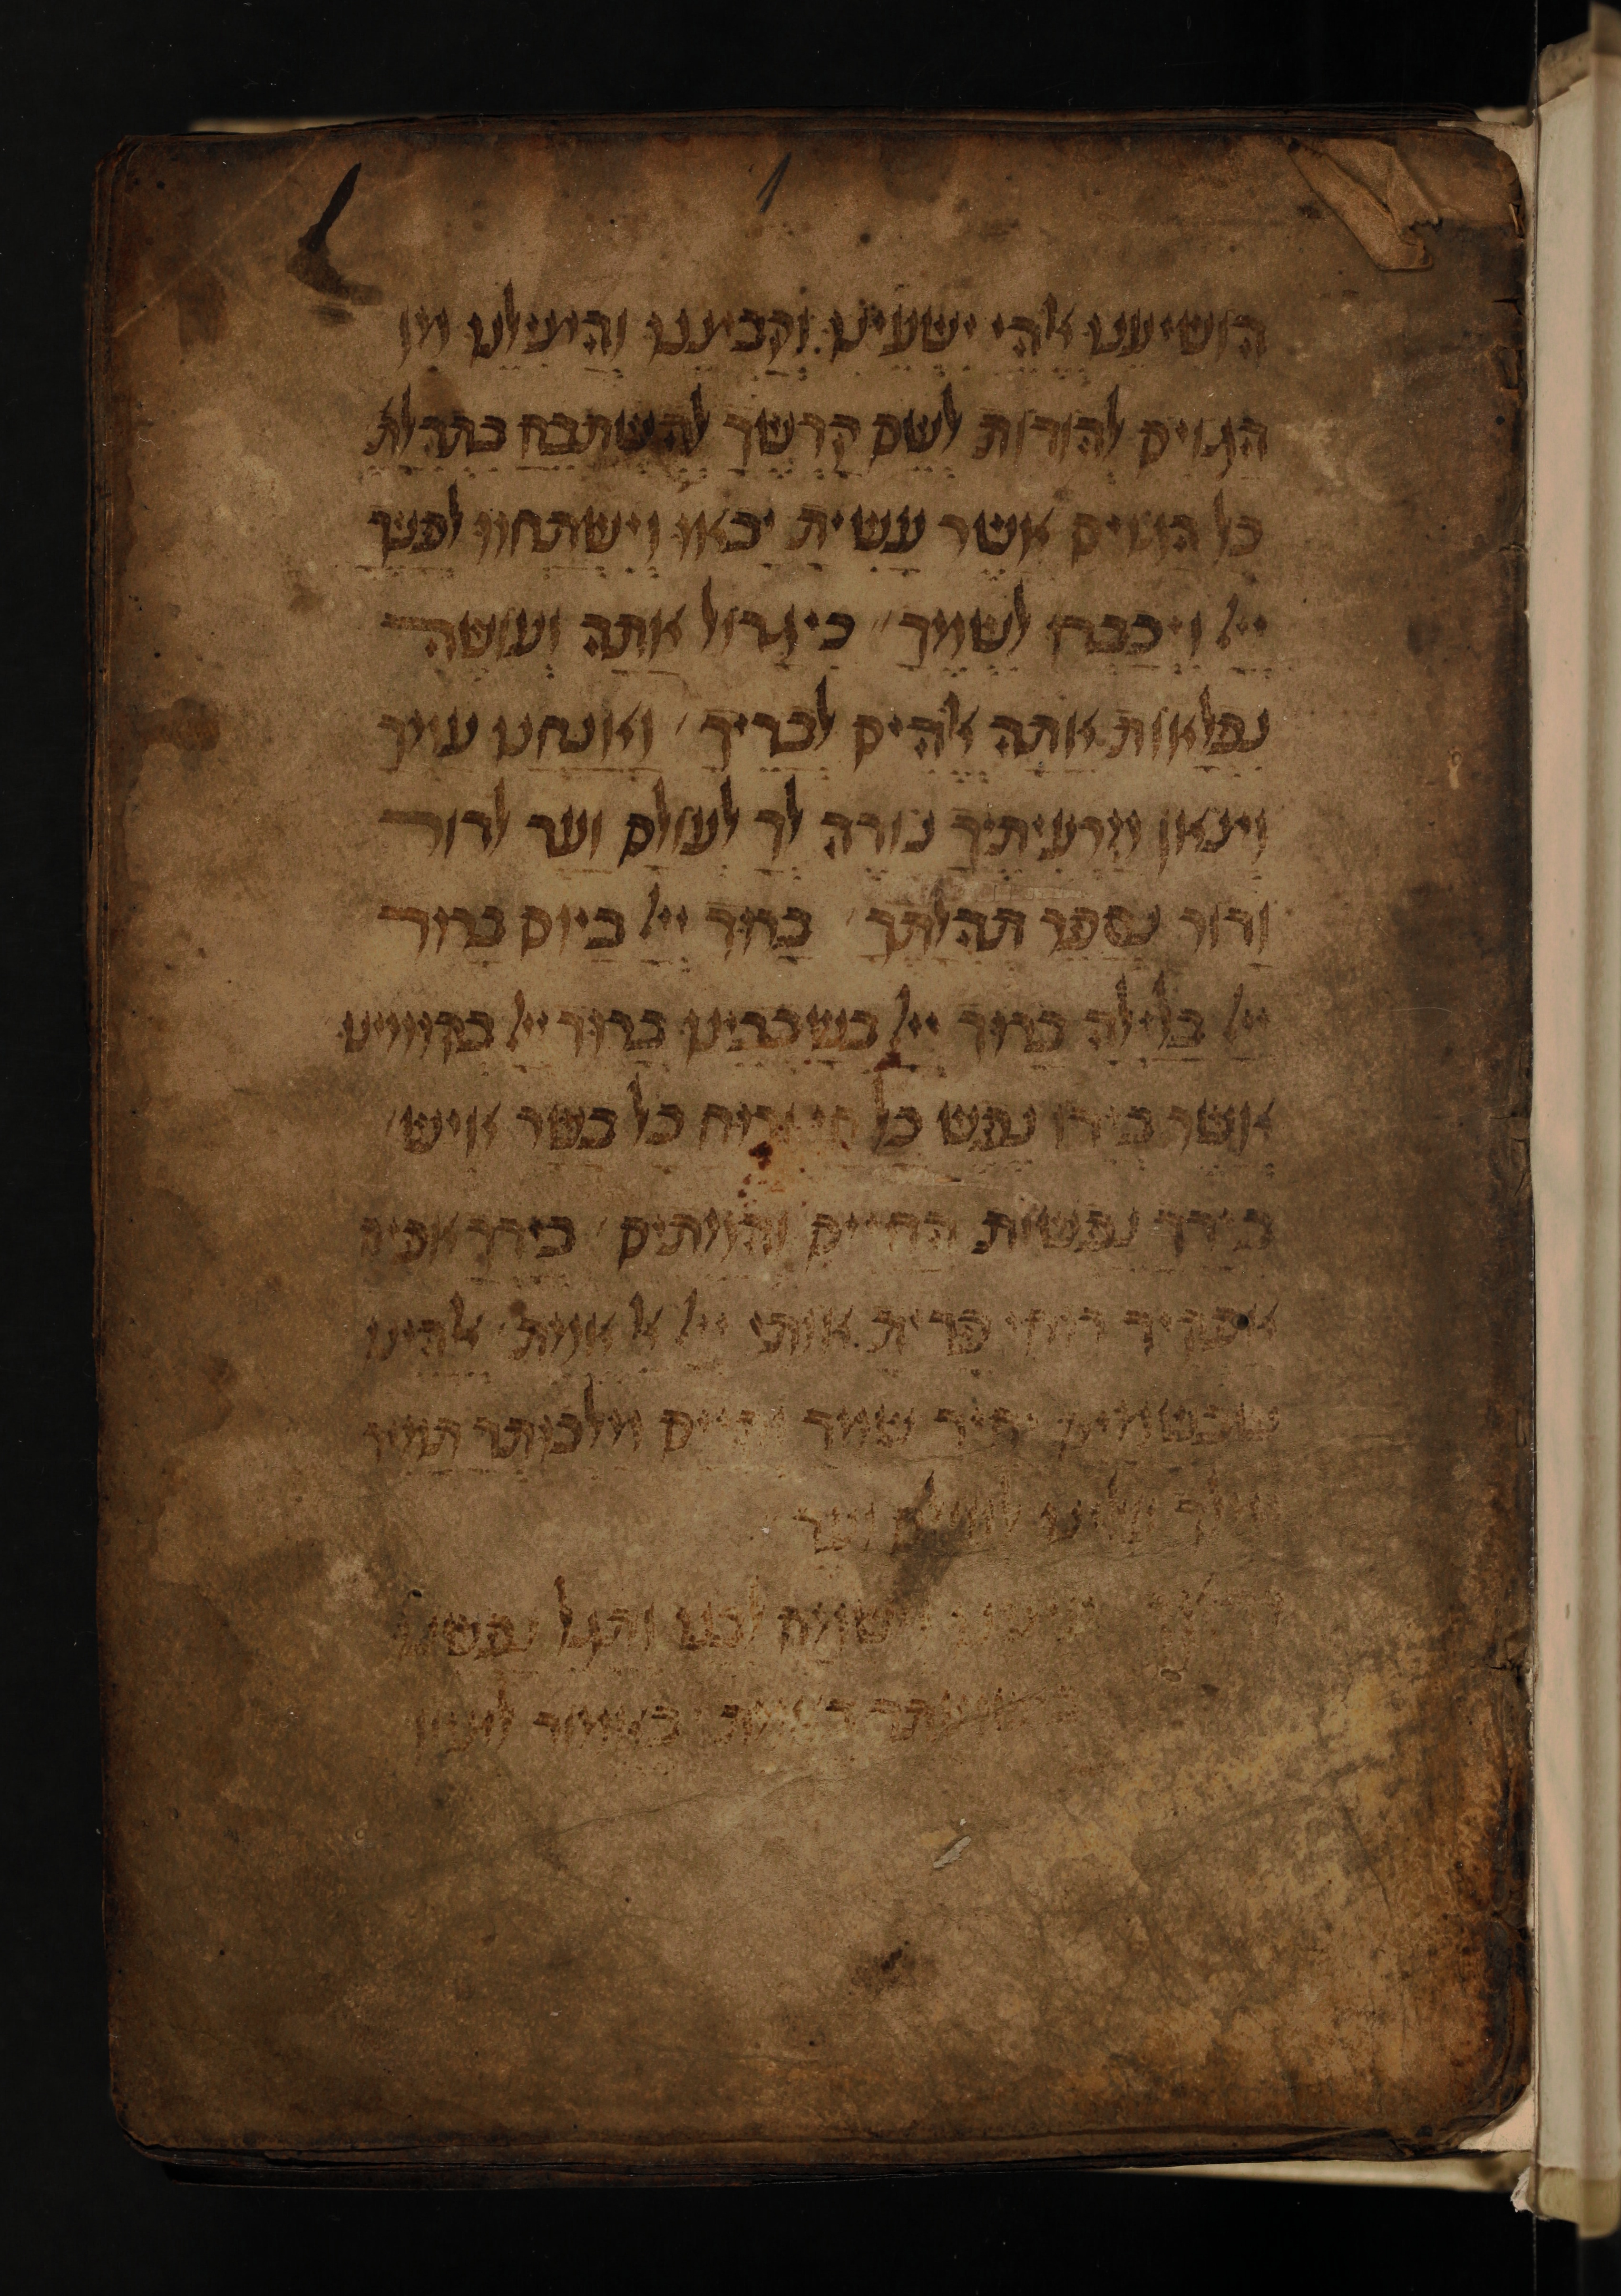 הושיענו אלהי ישעינו וקבצנו והצילנו מן
הגוים להודות לשם קדשך להשתבח בתהלת
כל הגוים אשר עשית יבאו וישתחוו לפניך
ייי ויכבדו לשמך כי גדול אתה ועושה
נפלאות אתה אלהים לבדיך ואנחנו עמך
וצאן מרעיתיך נודה לך לעולם ועד לדור
ודור נספר תהלתך ברוך ייי ביום ברוך
ייי בלילה ברוך ייי בשכבינו ברוך ייי בקומינו
אשר בידו נפש כל חי ורוח כל בשר איש
בידך נפשות החיים והמתים בידך
אפקיד רוחי פדית אותי ייי אל אמת אלהינו
שבשמים יחיד שמך קיים מלכותך תמיד
מלך עלינו לעולם ועד
וישמח לבנו ותגל נפשנו
באמת באמור לציון